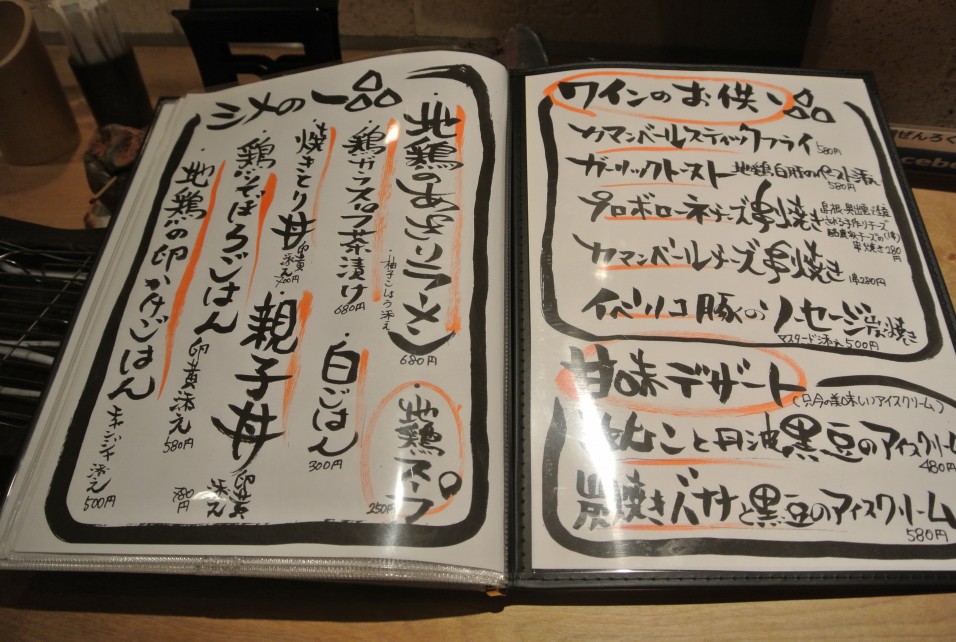 シメの一品
地鶏のあっさりラーメン
・柚子こしょう添え
680円
・地鶏スープ
250円
・鶏ガラスープ茶漬け
680円
・白ごはん
300円
・焼きとり丼
卵黄添え
・親子丼
卵黄添え
780円
・鶏そぼろごはん
卵黄添え
580円
・地鶏の卵かけごはん
キムジャン添え
500円
ワインのお供一品
カマンベールスティックフライ 580円
ガーリックトースト 地鶏白肝のペースト添え
580円
プロボローネチーズ串焼き
串焼き280円
カマンベールチーズ串焼き 1本280円
イベリコ豚のソーセージ炭焼き
マスタード添え500円
甘味デザート
(只今の美味しいアイスクリーム)
きなこと丹波黒豆のアイスクリーム
480円
炭焼きバナナと黒豆のアイスクリーム
580円
ぜんろく